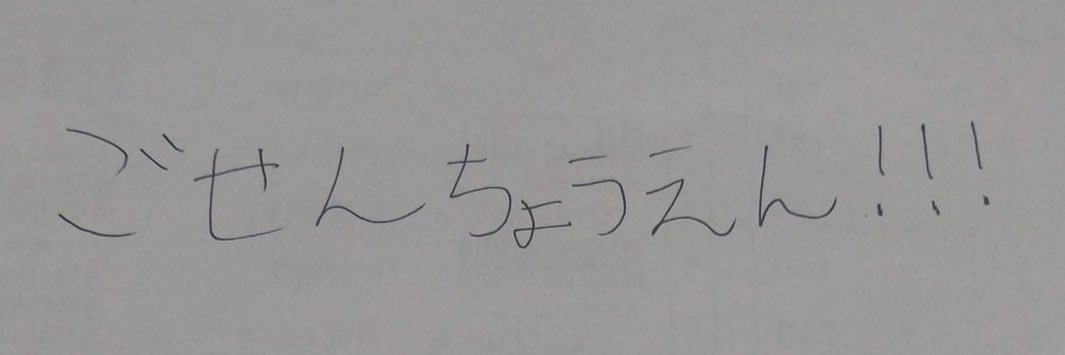 ごせんちょうえん!!!